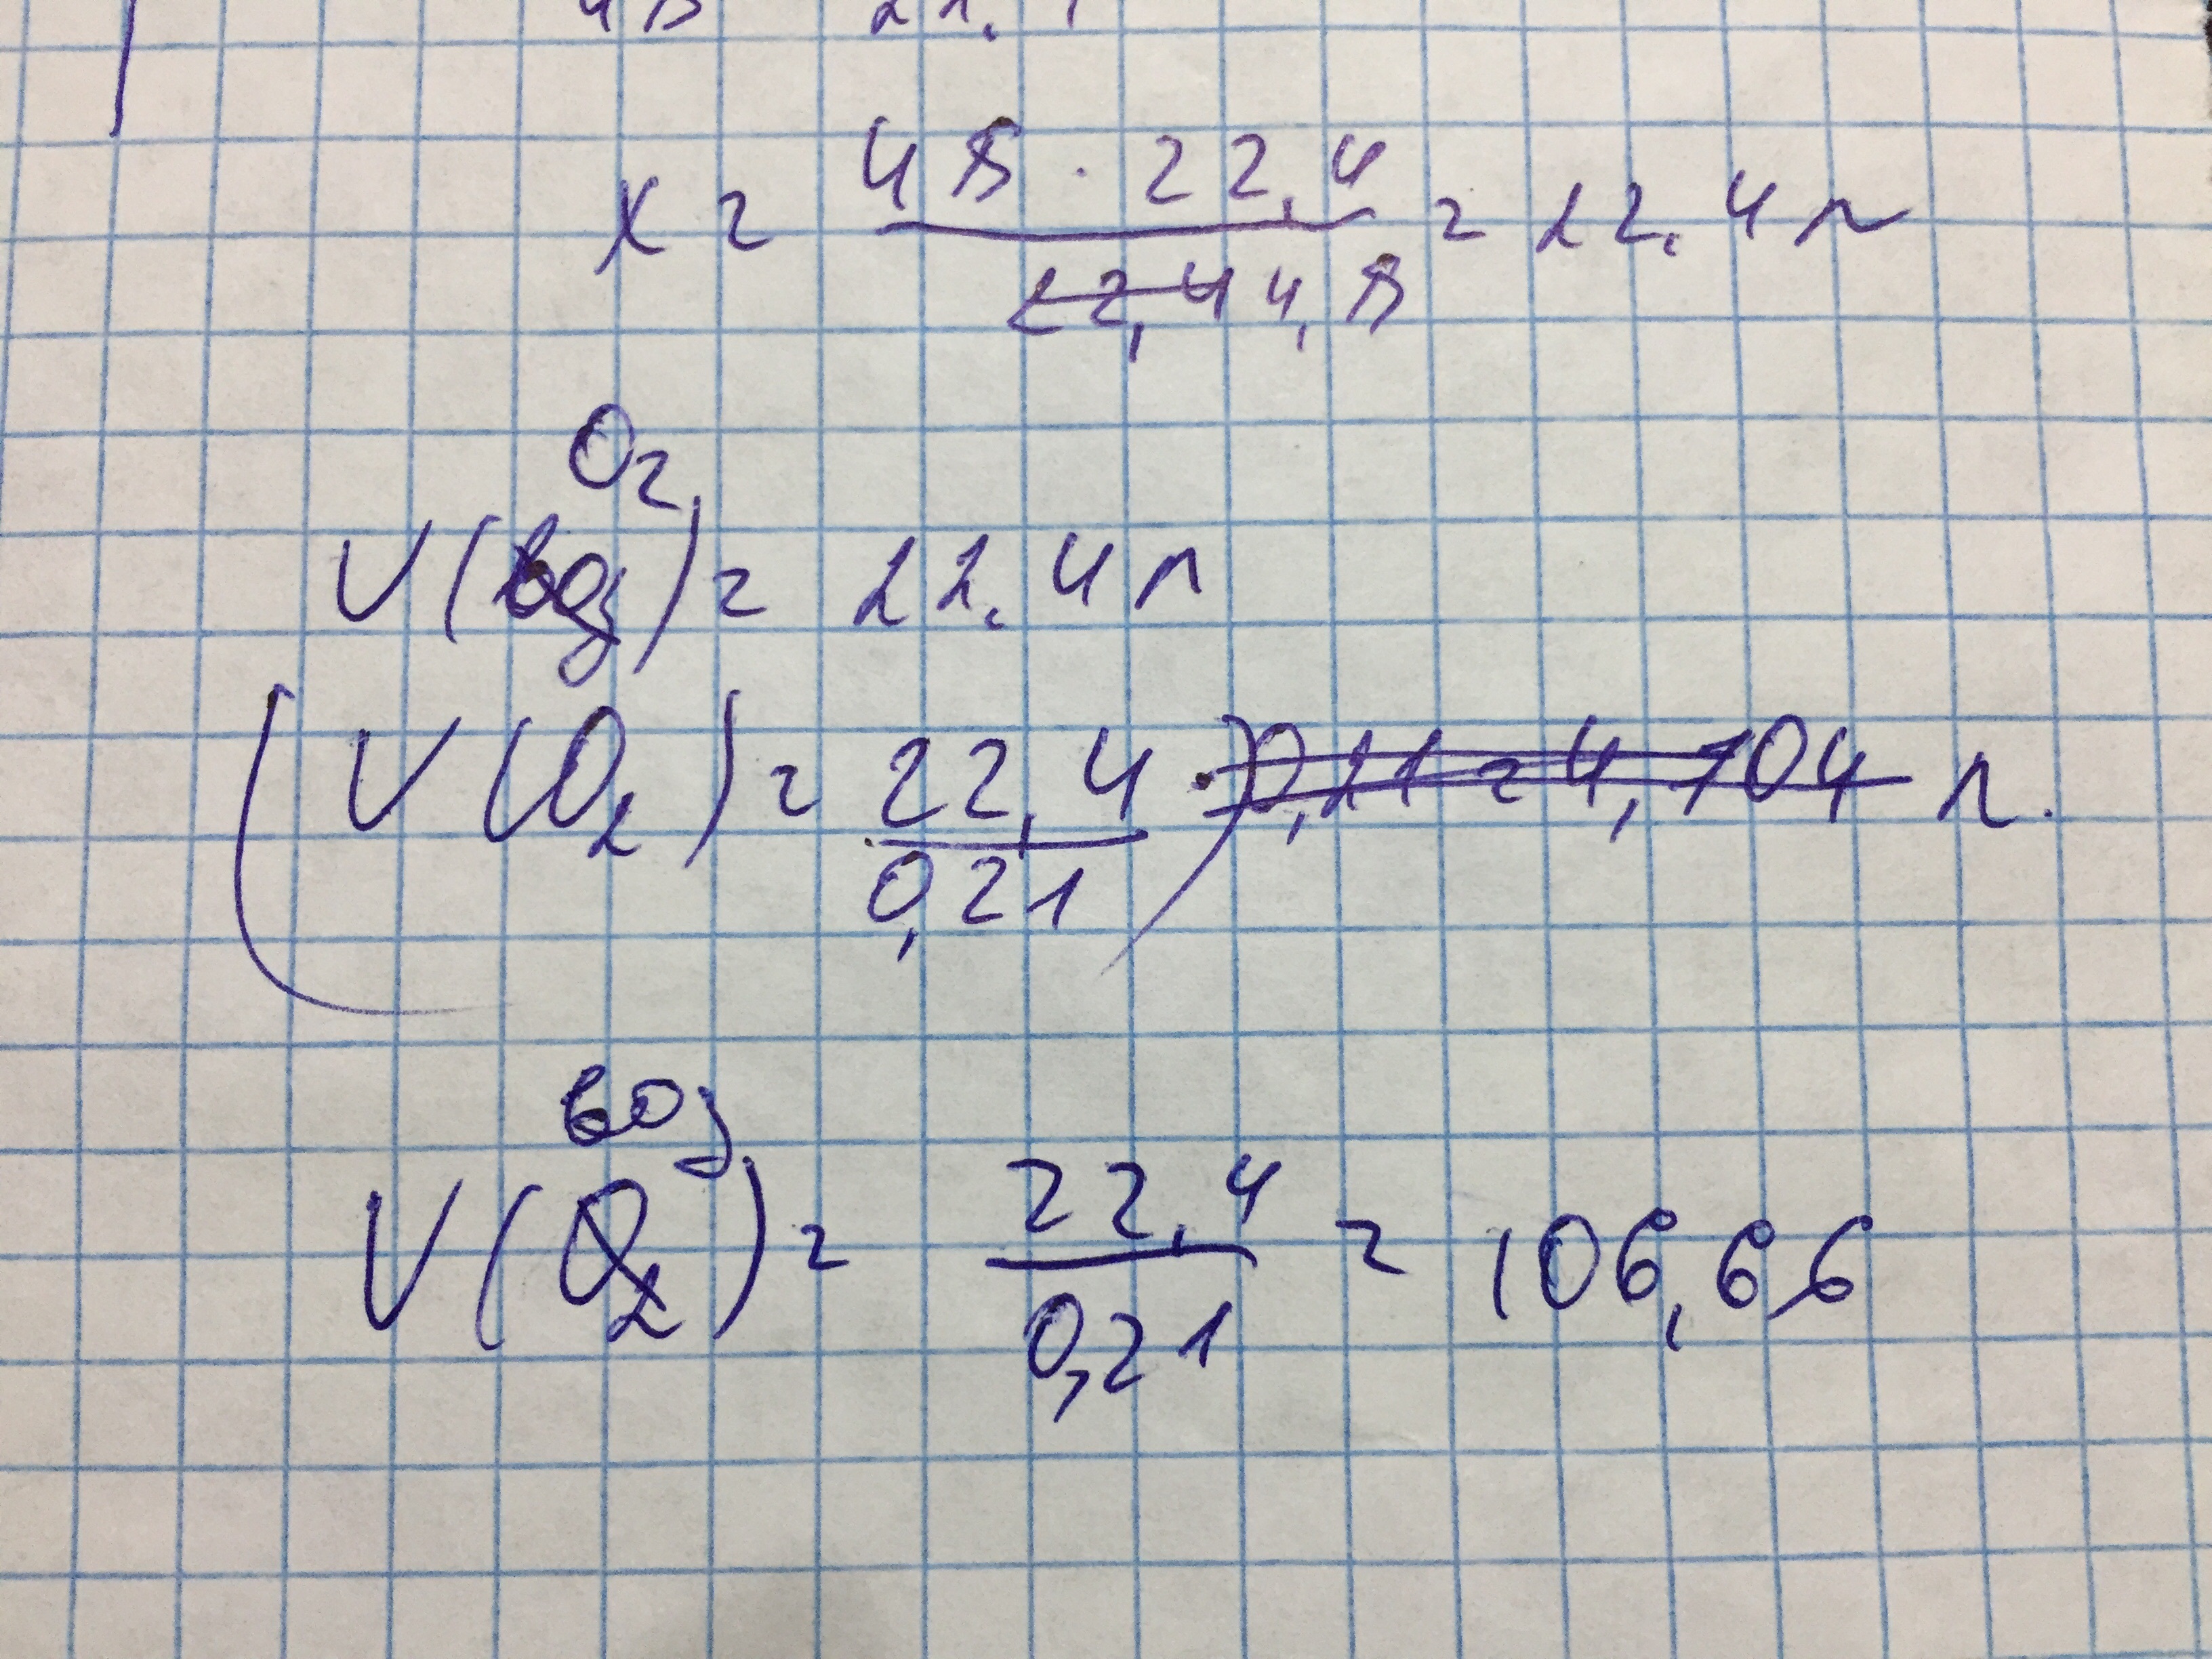 x = 48 · 22,4 / 22,4 4,8 = 22,4 л
O2
V(воз) = 22,4 л
V(O2) = 22,4 / 0,21 · 0,21 = 4,704 л.
воз
V(O2) = 22,4 / 0,21 = 106,66